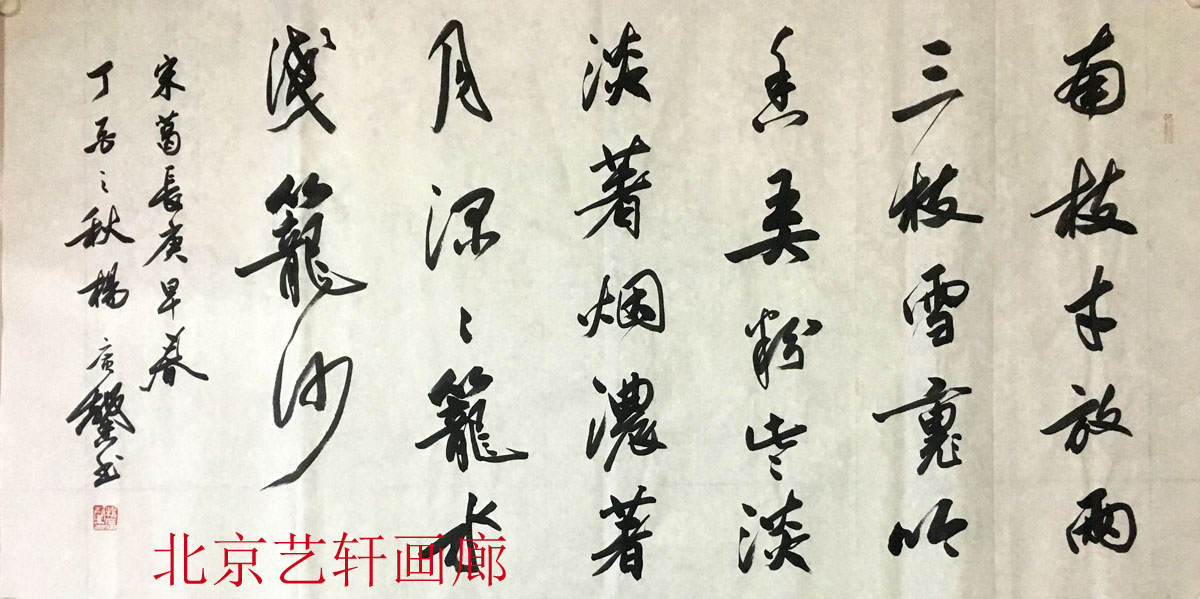 南枝才放兩
三枝雪裏吟
香弄粉些淡
淡著烟濃著
月深〻籠水
淺籠沙
宋葛長庚早春
丁酉之秋楊广馨书
北京艺轩画廊